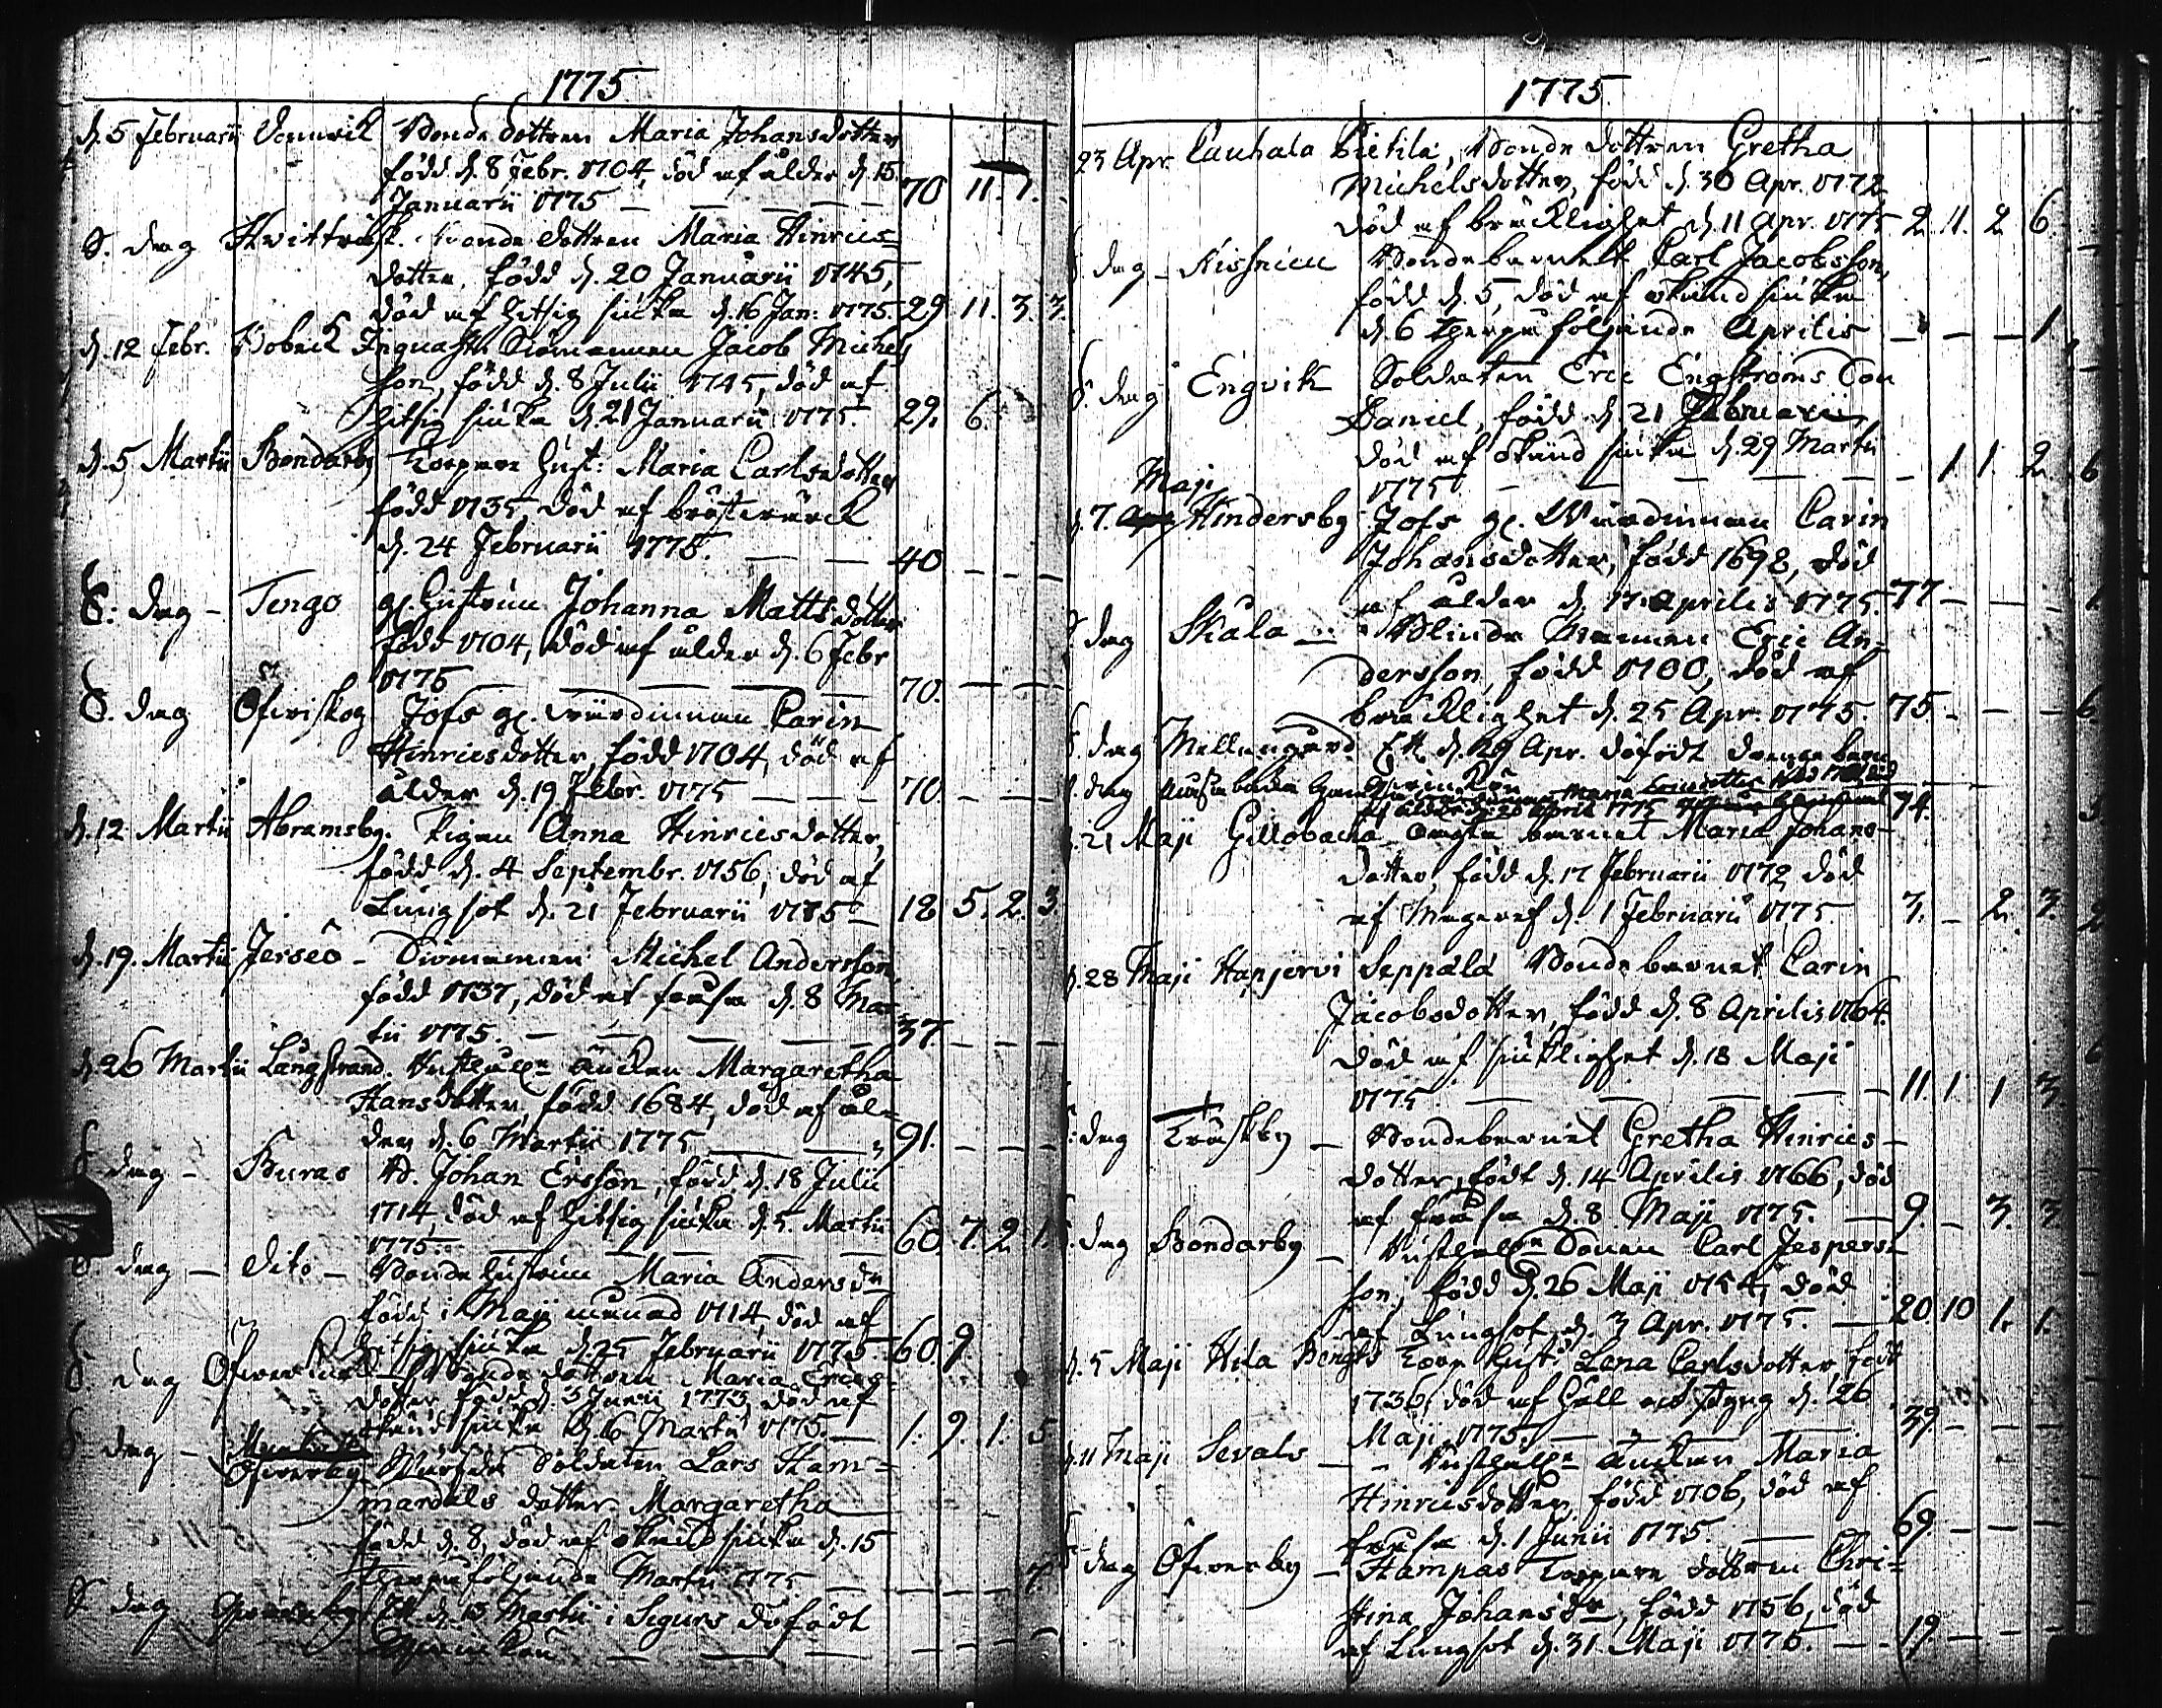 1775
d. 5 Februarii Domvik Bonde dottren Maria Johansdotter
född d. 8 Febr. 1704, död af ålder d. 15
Januarii 1775 — — — — 70 11. 1.
S. dag Hvitträsk. Bonde dottren Maria Hinrics-
dotter, född d. 20 Januarii 1745,
död af hitsig siuka d. 16 Jan: 1775. 29 11. 3. 3.
d. 12 Febr. Bobeck Ingmans Jacob Michels
son, född d. 8 Julii 1745, död af
hitsig siuka d. 21 Januarii 1775. 29. 6.
d. 5 Martii Bondarby Torpare Hust: Maria Carlsdotter
född 1735, död af
d. 24 Februarii 1775. — — 40. — — —
S. dag – Tengo gl. Hustrun Johanna Mattsdotter
född 1704, död af ålder d. 6 Febr
1775 — — — — 70. — — —
S. dag Ofwerskog Jofs gl. värdinnan Carin
Hinricsdotter, född 1704, död af
ålder d. 19 Febr. 1775 — — — 70. — — —
d. 12 Martii Abramsby. Pigan Anna Hinricsdotter,
född d. 4 Septembr. 1756, död af
Lungsot d. 21 Februarii 1775 – 18 5. 2. 3.
d. 19. Martii Jerseö – Michel Andersson,
född 1737, död af frossa d. 8 Mar-
tii 1775. — — — — 37 — — —
d 26 Martii Långstrand. Enkan Margaretha
Hansdotter, född 1684, död af ål-
der d. 6 Martii 1775 — — 91. — — —
S dag – Buras B. Johan Ersson, född d. 18 Julii
1714, död af hitsig siuka d. 5. Martii
1775. — — — — 60. 7. 2 1.
S. dag – Dito – Bonde Hustrun Maria Andersdr
född i Maji månad 1714, död af
hitsig siuka d. 25 Februarii 1775. 60. 9.
S. dag Bonde dottren Maria Erics-
dotter född d. 5 Junii 1773, död af
okänd siuka d. 6 Martii 1775. — 1. 9. 1. 5
S dag – Ofwerby Soldaten Lars Ham-
mardals dotter Margaretha
född d. 8, död af okänd siuka d. 15
Martii 1775 — — — — 7.
S dag Ett d. 13 Martii i Segers dödfödt
— — — —
1775.
23 Apr. Lauhala Pietilä, Bonde dottren Gretha
Michelsdotter, född d. 30 Apr. 1772
död af bräcklighet d. 11 Apr. 1775 2. 11. 2 6.
S dag – Kisnieu Bondebarnet Carl Jacobsson,
född d. 5, död af okänd siuka
d. 6 följande Aprilis — — — 1.
S. dag Engvik Soldaten Eric Engströms Son
Daniel, född d. 21 Februarii,
död af okänd siuka d. 29 Martii
1775 — — — — 1 1. 2.
Maji
d. 7. Hindersby Jofs gl. Wärdinnan Carin
Johansdotter, född 1698, död
af ålder d. 17. Aprilis 1775. 77 — — —
S dag Skala – Blinde Mannen Eric An-
dersson, född 1700, död af
bräcklighet d. 25 Apr. 1775. 75. — — —
S. dag Mellangård Ett d. 29 Apr. dödfödt
S. dag Maria
April 1775 74.
d. 21 Maji Gillobacka barnet Maria Johans-
dotter, född d. 17 Februarii 1772, död
af d. 1 Februarii 1775. 3. – 2. 3.
d. 28 Maji Hapjervi Seppälä Bonde barnet Carin
Jacobsdotter, född d. 8 Aprilis 1764.
död af siuklighet d. 18 Maji
1775 — — — — 11. 1 1 3.
S: dag Träskby – Bondebarnet Gretha Hinrics-
dotter, född d. 14 Aprilis 1766, död
af frossa d. 8 Maji 1775. — 9. – 3. 3
S. dag Bondarby – Sonen Carl Jespers-
son, född d. 26 Maji 1754, död
af Lungsot d. 3 Apr. 1775. — 20 10 1. 1.
d. 5 Maji Bengts Torp Hust: Lena Carlsdotter, född
1736, död af håll och styng d. 26
Maji 1775. — — 39. — — —
d. 11 Maji Sevals – Enkan Maria
Hinricsdotter, född 1706, död af
frossa d. 1 Junii 1775. — 69. — — —
S dag Ofwerby – Hampas Torpare dottren Chri-
stina Johansdr, född 1756, död
af Lungsot d. 31. Maji 1775. — 19. — — —